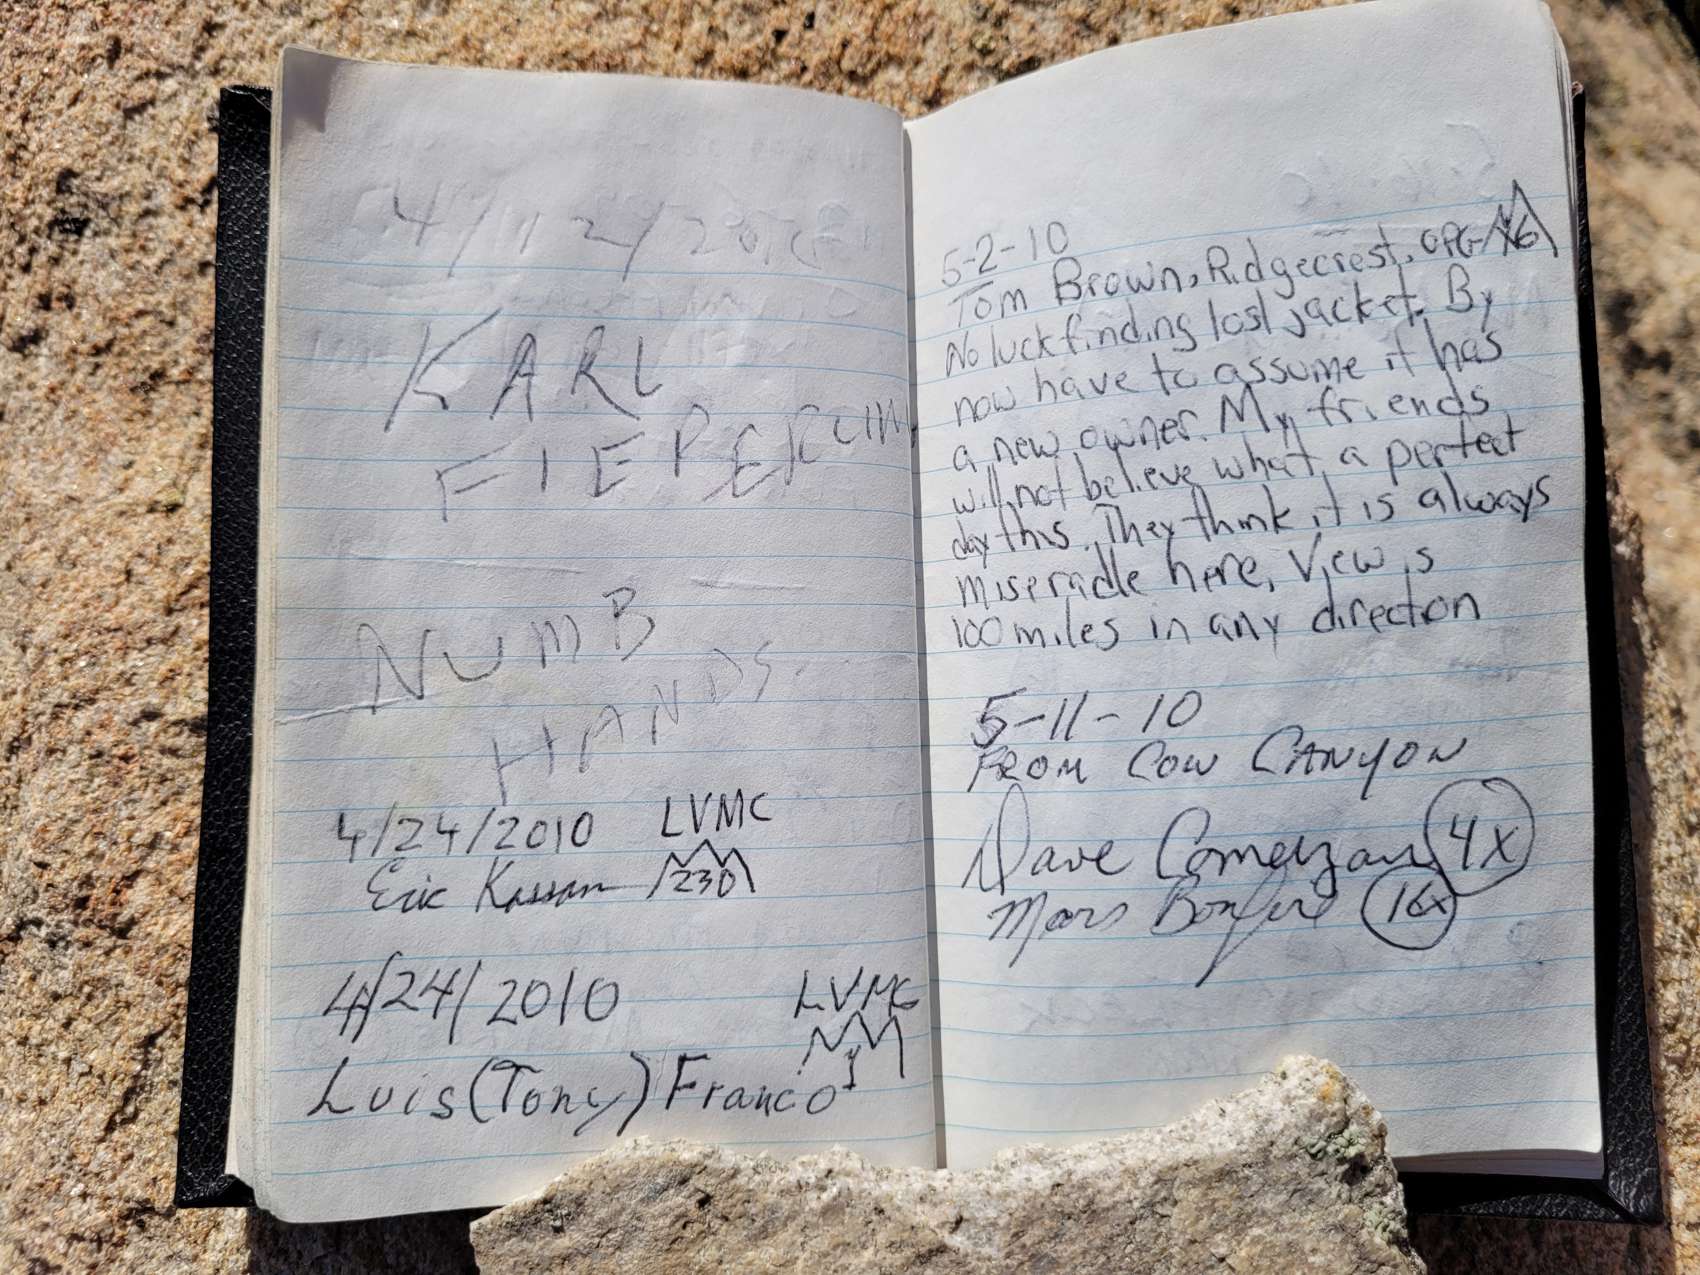 KARL
NUMB
HANDS.
4/24/2010 LVMC
Eric Kassan 230
4/24/2010 LVMC
Luis (Tony) Franco 1
5-2-10
Tom Brown, Ridgecrest,
No luck finding lost jacket. By
now have to assume it has
a new owner. My friends
will not believe what a perfect
day this. They think it is always
miseradle here, View is
100 miles in any direction
5-11-10
FROM COW CANYON
Dave Comerzan 4x
Mars Bonfire 16x